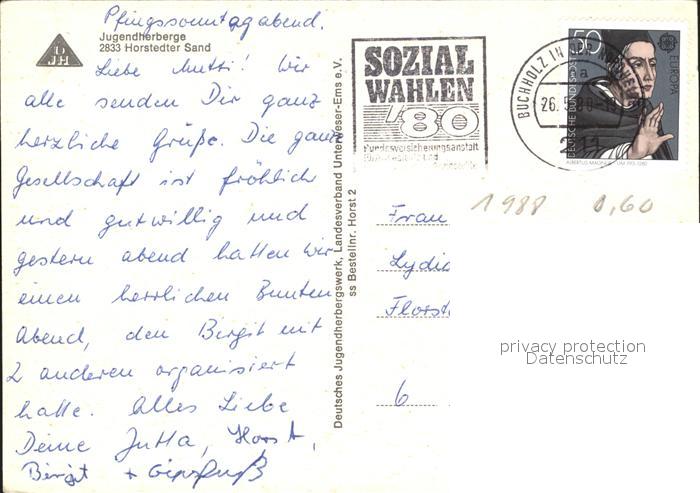 Pfingssonntagabend.
Jugendherberge
2833 Horstedter Sand
DJH
Liebe Mutti! Wir
alle senden Dir ganz
herzliche Grüße. Die ganze
Gesellschaft ist fröhlich
und gutwillig und
gestern abend hatten wir
einen herrlichen Bunten
Abend, den Birgit mit
2 anderen organisiert
hatte. Alles Liebe
Deine Jutta, Horst,
Birgit +
Deutsches Jugendherbergswerk, Landesverband Unterweser-Ems e.V.
ss Bestellnr. Horst 2
SOZIAL
WAHLEN
'80
Bundesversicherungsanstalt
BUCHHOLZ IN DER NORDHEIDE
a
26.5.80
211
50
DEUTSCHE BUNDESPOST
EUROPA
ALBERTUS MAGNUS 1193-1280
1988 0,60
Frau
Lydia
Florst
6
privacy protection
Datenschutz